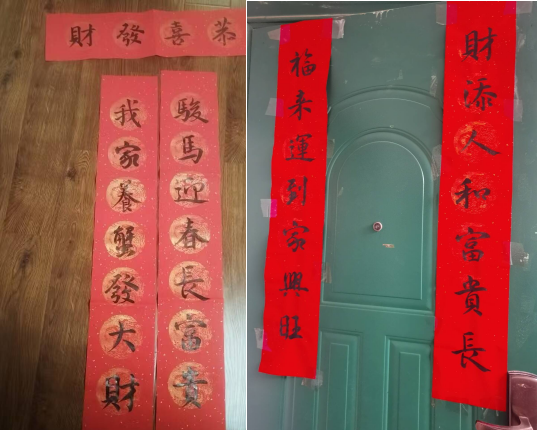 恭喜發財
駿馬迎春長富貴
我家養蟹發大財
財添人和富貴長
福来運到家興旺